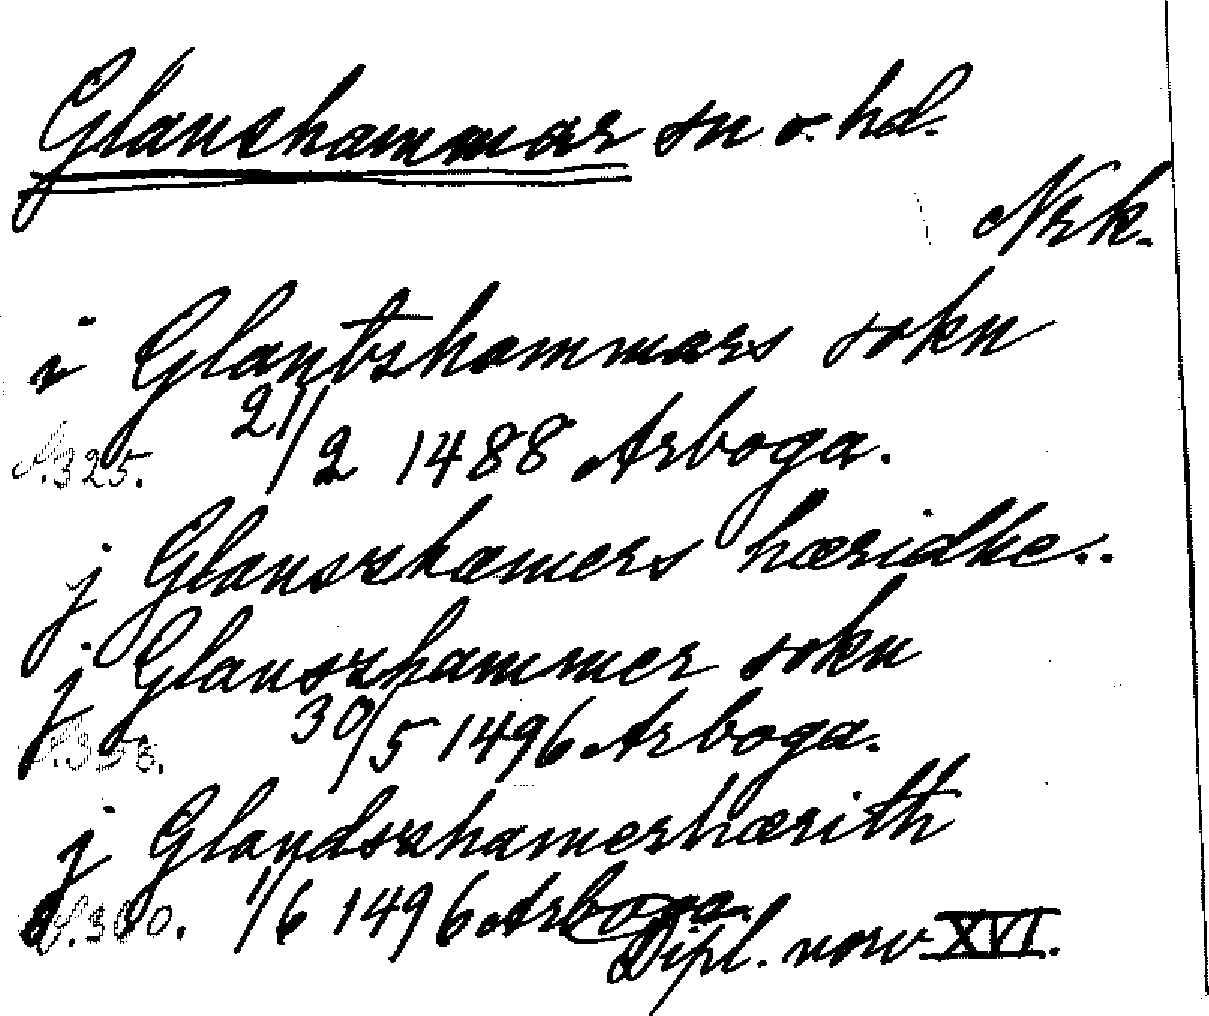 Glanshammar sn o. hd.
Nrk.
i Glantzhammars sokn
s.325. 21/2 1488 Arboga.
j Glanszhamers hæridhe..
j Glanszhammer sokn
30/5 1496 Arboga.
j Glandszhamerhærith
1/6 1496 Arboga.
Dipl. norv. XVI.